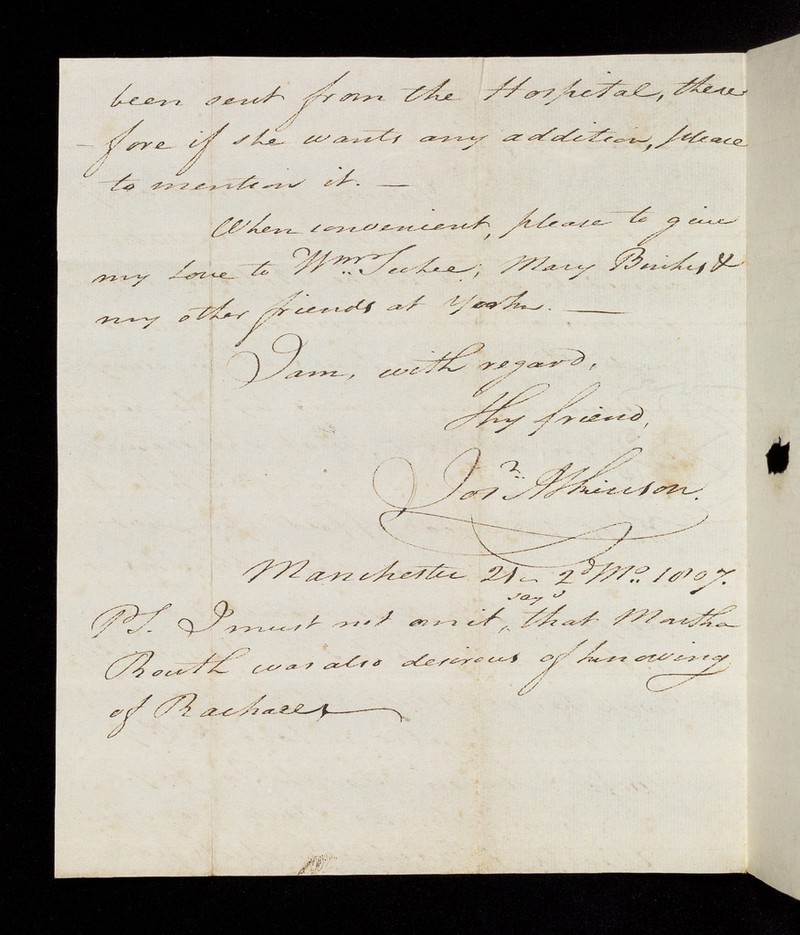 been sent from the Hospital, there
-fore if she wants any addition, please
to mention it. —
When convenient, please to give
my Love to Wm. Tuke, Mary Binks &
my other friends at York. —
I am, with regard,
Thy friend,
Josh. Atkinson.
Manchester 21 - 2d Mo. 1807.
say
PS. I must not omit, that Martha
Routh was also desirous of knowing
of Rachael